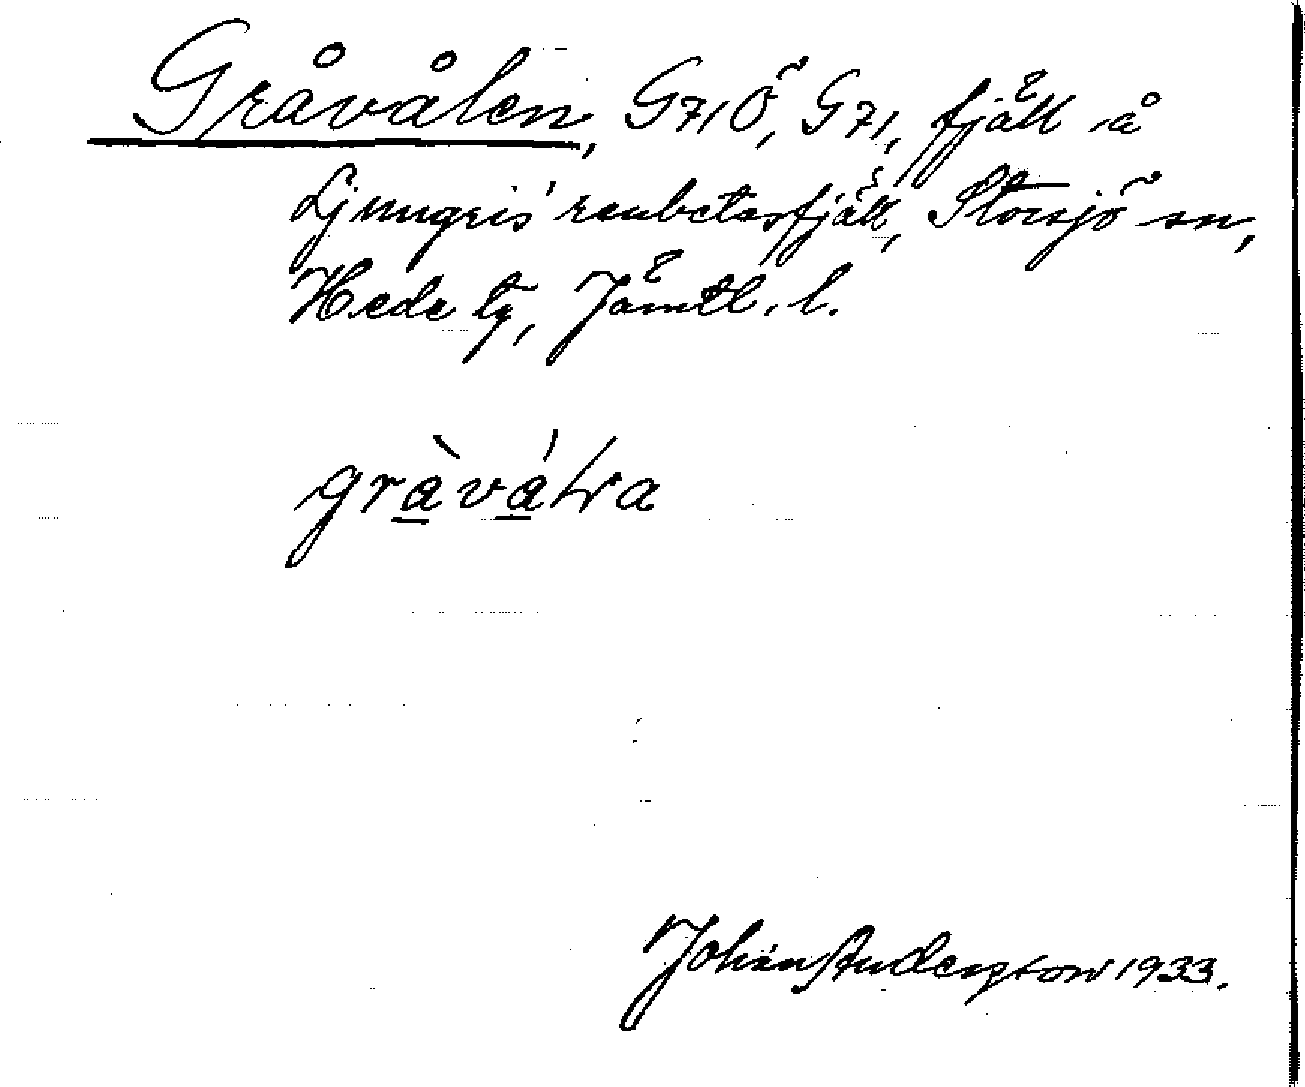 Gråvålen, G71Ö, G71, fjäll å
Ljungris' renbetesfjäll, Storsjö sn,
Hede tg, Jämtl. l.
gràválra
Johan Anderzson 1933.